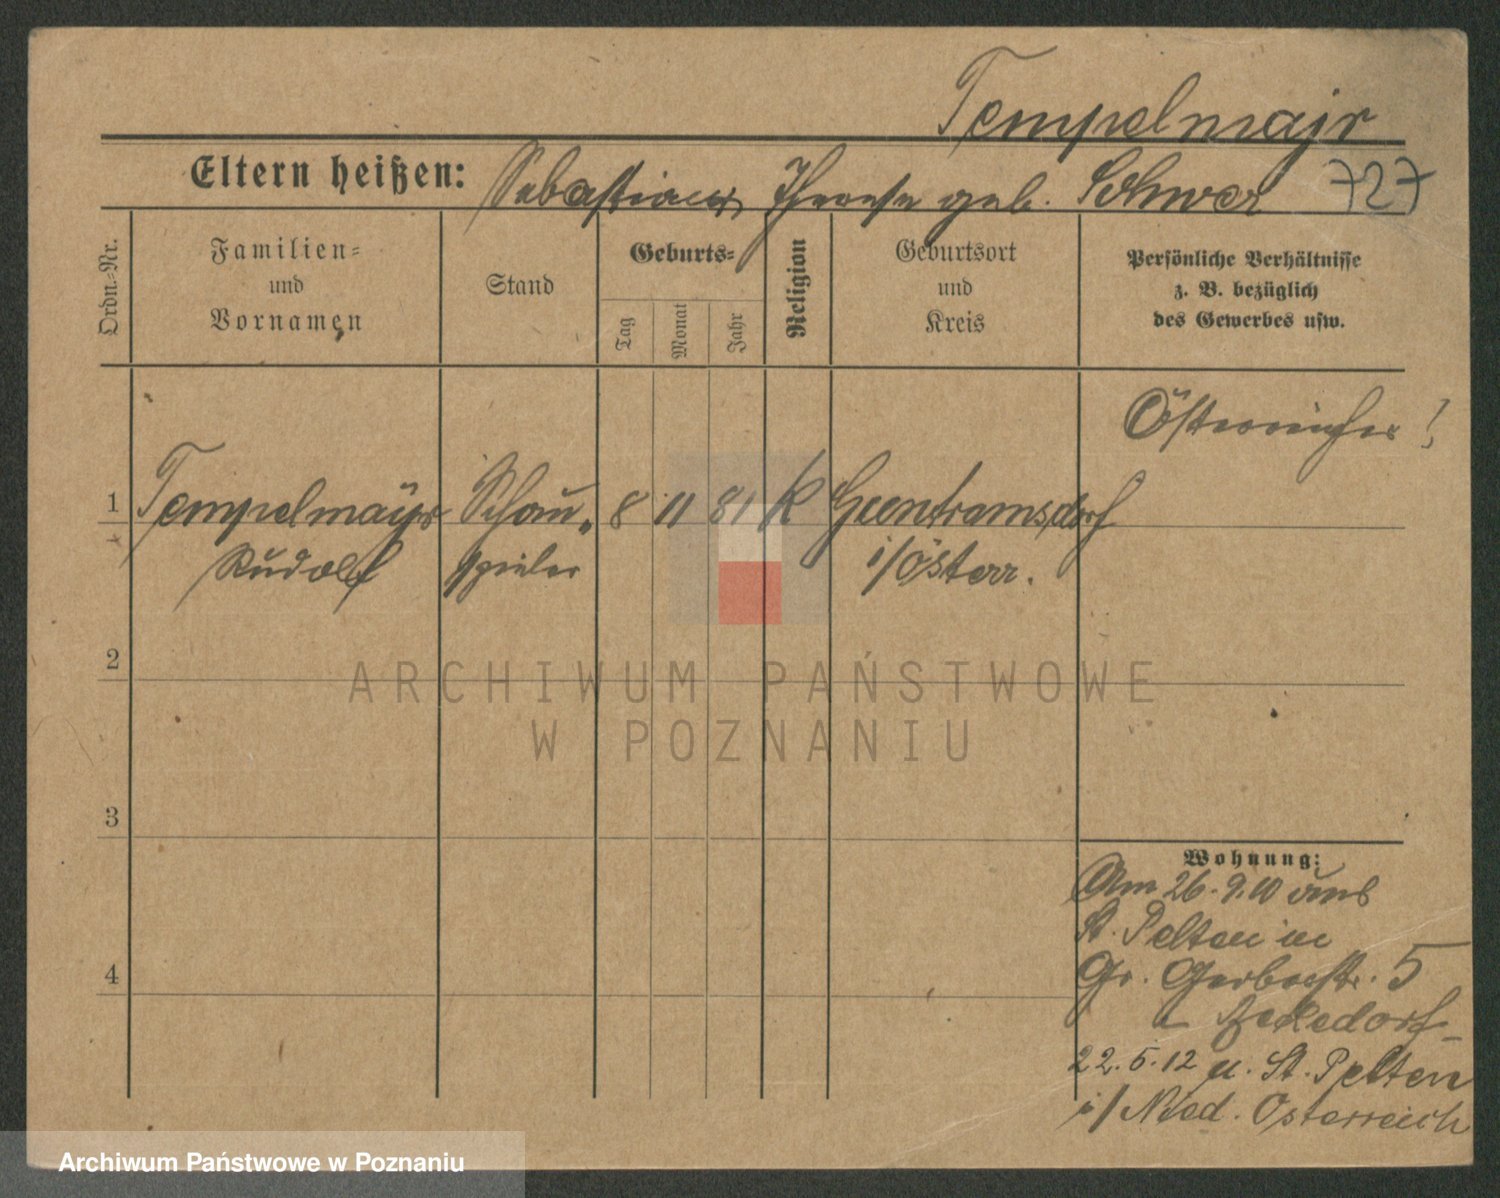 Tempelmajr
Eltern heißen: Sebastian, Therese geb. Schwer 727
Ordn.-Nr.
Familien-
und
Vornamen
Stand
Geburts-
Tag
Monat
Jahr
Religion
Geburtsort
und
Kreis
Persönliche Verhältnisse
z. B. bezüglich
des Gewerbes usw.
Österreicher!
1 Tempelmayr Schau- 8 11 81 K
Rudolf spieler i/Österr.
2
3
4
Wohnung:
Am 26.9.10 aus
St. Pelten in
Gr. Gerberstr. 5
22.5.12 n. St. Pelten
i/ Nied. Österreich
ARCHIWUM PAŃSTWOWE
W POZNANIU
Archiwum Państwowe w Poznaniu